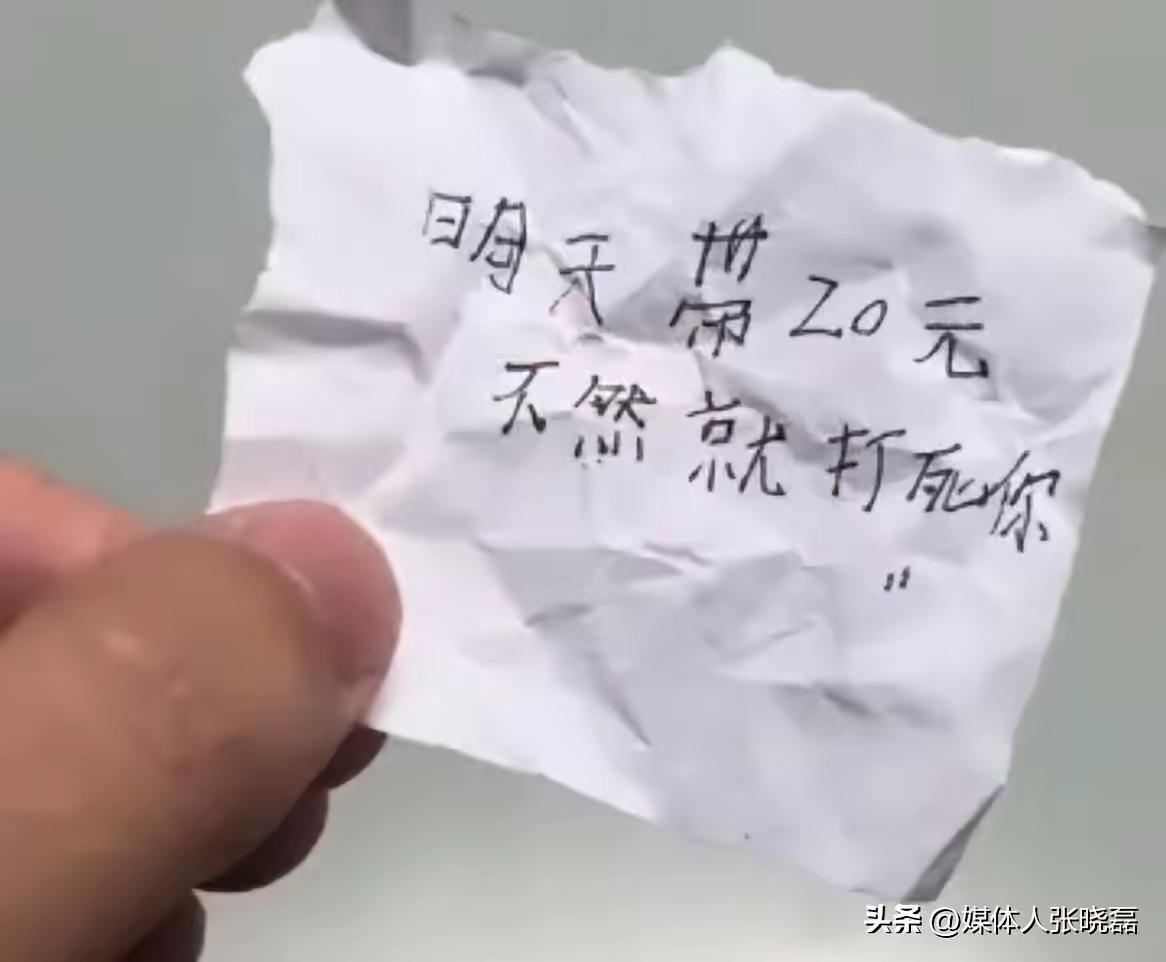 明天带20元
不然就打死你
"
头条 @媒体人张晓磊